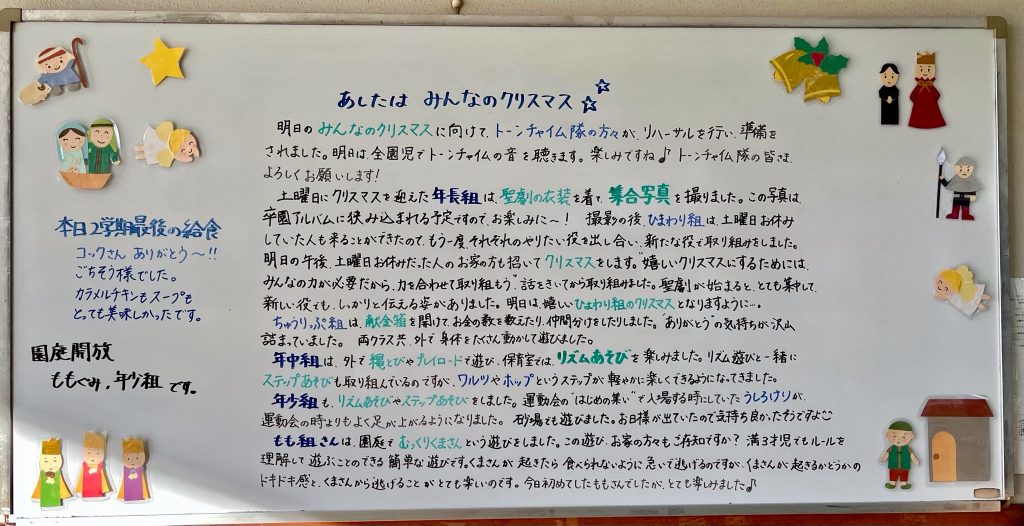 あしたは みんなのクリスマス☆☆
明日の みんなのクリスマスに向けて、トーンチャイム隊の方々が、リハーサルを行い、準備を
されました。明日は、全園児でトーンチャイムの音を聴きます。楽しみですね♪ トーンチャイム隊の皆さま、
よろしくお願いします!
土曜日にクリスマスを迎えた年長組は、聖劇の衣装を着て、集合写真を撮りました。この写真は、
卒園アルバムに挟み込まれる予定ですので、お楽しみに〜! 撮影の後、ひまわり組は、土曜日お休み
していた人も来ることができたので、もう一度それぞれのやりたい役を出し合い、新たな役で取り組みをしました。
明日の午後、土曜日お休みだった人のお家の方も招いてクリスマスをします。"嬉しいクリスマスにするためには、
みんなの力が必要だから、力を合わせて取り組もう"と話をきいてから取り組みました。聖劇が始まると、とても集中して、
新しい役でも、しっかりと伝える姿がありました。明日は、嬉しいひまわり組のクリスマスとなりますように…。
ちゅうりっぷ組は、献金箱を開けて、お金の数を数えたり、仲間分けをしたりしました。"ありがとう"の気持ちが沢山
詰まっていました。 両クラス共、外で身体をたくさん動かして遊びました。
年中組は、外で縄とびやプレイロードで遊び、保育室では、リズムあそびを楽しみました。リズム遊びと一緒に
ステップあそびも取り組んでいるのですが、ワルツやホップというステップが、軽やかに楽しくできるようになってきました。
年少組も、リズムあそびやステップあそびをしました。運動会の"はじめの集い"で入場する時にしていたうしろけりが、
運動会の時よりもよく足が上がるようになりました。 砂場でも遊びました。お日様が出ていたので気持ち良かったそうですよ☺
もも組さんは、園庭でむっくりくまさんという遊びをしました。この遊び、お家の方々もご存知ですか? 満3才児でもルールを
理解して遊ぶことのできる簡単な遊びです。くまさんが起きたら食べられないように急いで逃げるのですが、くまさんが起きるかどうかの
ドキドキ感と、くまさんから逃げることがとても楽しいのです。今日初めてしたももさんでしたが、とても楽しみました♪
本日2学期最後の給食
コックさん ありがとう〜!!
ごちそう様でした。
カラメルチキンもスープも
とっても美味しかったです。
園庭開放
ももぐみ、年少組です。